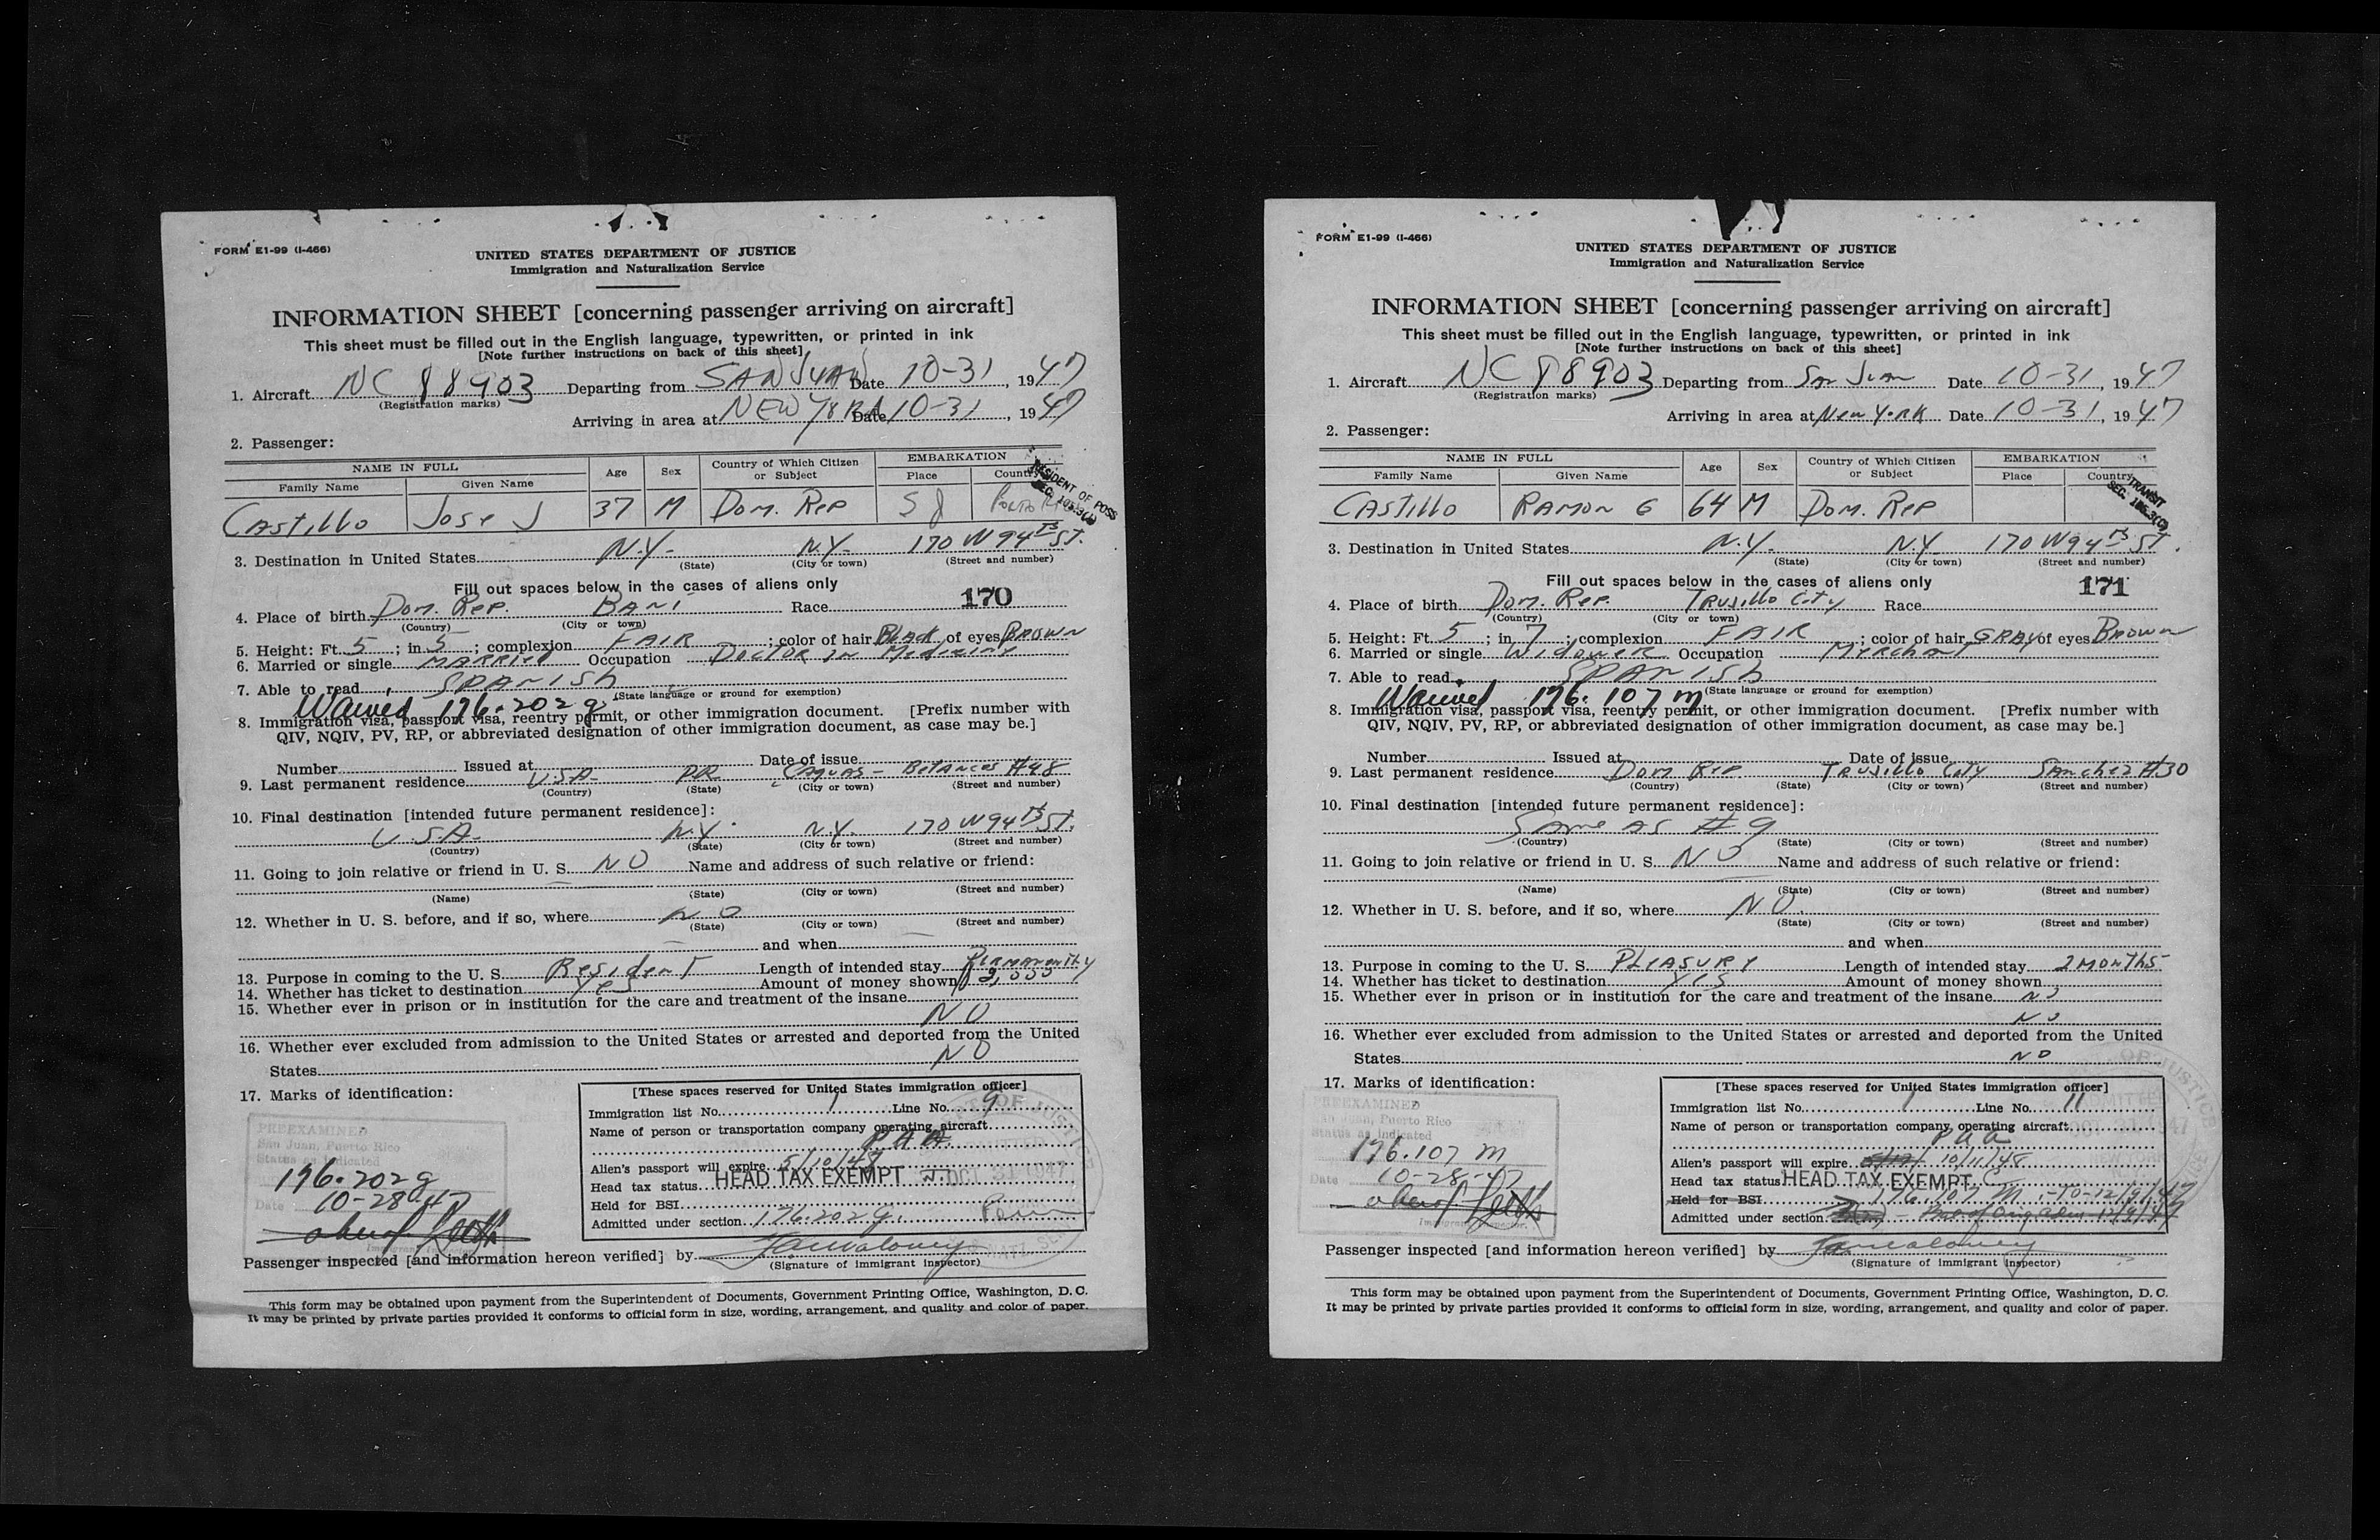 FORM E1-99 (I-466)
UNITED STATES DEPARTMENT OF JUSTICE
Immigration and Naturalization Service
INFORMATION SHEET [concerning passenger arriving on aircraft]
This sheet must be filled out in the English language, typewritten, or printed in ink
[Note further instructions on back of this sheet]
1. Aircraft NC 88903 Departing from SAN JUAN Date 10-31, 1947
(Registration marks)
Arriving in area at NEW YORK Date 10-31, 1947
2. Passenger:
NAME IN FULL Age Sex Country of Which Citizen or Subject EMBARKATION
Family Name Given Name Place Country
RESIDENT OF POSS
SEC.
Castillo Jose J 37 M Dom. Rep S J
3. Destination in United States N.Y. N.Y. 170 W 94th St.
(State) (City or town) (Street and number)
Fill out spaces below in the cases of aliens only
170
4. Place of birth Dom. Rep. BANI Race
(Country) (City or town)
5. Height: Ft. 5; in. 5; complexion FAIR; color of hair Black of eyes BROWN
6. Married or single MARRIED Occupation Doctor in Medicine
7. Able to read SPANISH
(State language or ground for exemption)
Waived 176.202 g
8. Immigration visa, passport visa, reentry permit, or other immigration document. [Prefix number with
QIV, NQIV, PV, RP, or abbreviated designation of other immigration document, as case may be.]
Number Issued at Date of issue
9. Last permanent residence U.S.A. P.R. Caguas - Betances #48
(Country) (State) (City or town) (Street and number)
10. Final destination [intended future permanent residence]:
U.S.A. N.Y. N.Y. 170 W 94th St.
(Country) (State) (City or town) (Street and number)
11. Going to join relative or friend in U. S. NO Name and address of such relative or friend:
(Name) (State) (City or town) (Street and number)
12. Whether in U. S. before, and if so, where NO
(State) (City or town) (Street and number)
and when
13. Purpose in coming to the U. S. Resident Length of intended stay Permanently
14. Whether has ticket to destination Yes Amount of money shown
15. Whether ever in prison or in institution for the care and treatment of the insane
NO
16. Whether ever excluded from admission to the United States or arrested and deported from the United
States NO
17. Marks of identification:
PREEXAMINED
San Juan, Puerto Rico
Status as indicated
176.202 g
Date 10-28-47
[These spaces reserved for United States immigration officer]
Immigration list No. 1 Line No. 9
Name of person or transportation company operating aircraft
P A A
Alien's passport will expire 5/10/48
Head tax status HEAD TAX EXEMPT
Held for BSI
Admitted under section 176.202 g.
Passenger inspected [and information hereon verified] by
(Signature of immigrant inspector)
This form may be obtained upon payment from the Superintendent of Documents, Government Printing Office, Washington, D. C.
It may be printed by private parties provided it conforms to official form in size, wording, arrangement, and quality and color of paper.
FORM E1-99 (I-466)
UNITED STATES DEPARTMENT OF JUSTICE
Immigration and Naturalization Service
INFORMATION SHEET [concerning passenger arriving on aircraft]
This sheet must be filled out in the English language, typewritten, or printed in ink
[Note further instructions on back of this sheet]
1. Aircraft NC 88903 Departing from San Juan Date 10-31, 1947
(Registration marks)
Arriving in area at New York Date 10-31, 1947
2. Passenger:
NAME IN FULL Age Sex Country of Which Citizen or Subject EMBARKATION
Family Name Given Name Place Country
TRANSIT
SEC.
Castillo RAMON G 64 M Dom. Rep
3. Destination in United States N.Y. N.Y. 170 W 94th St.
(State) (City or town) (Street and number)
Fill out spaces below in the cases of aliens only
171
4. Place of birth Dom. Rep. Trujillo City Race
(Country) (City or town)
5. Height: Ft. 5; in. 7; complexion FAIR; color of hair GRAY of eyes Brown
6. Married or single Widower Occupation Merchant
7. Able to read SPANISH
(State language or ground for exemption)
Waived 176.107 m
8. Immigration visa, passport visa, reentry permit, or other immigration document. [Prefix number with
QIV, NQIV, PV, RP, or abbreviated designation of other immigration document, as case may be.]
Number Issued at Date of issue
9. Last permanent residence Dom Rep. Trujillo City Sanchez #30
(Country) (State) (City or town) (Street and number)
10. Final destination [intended future permanent residence]:
Same as #9
(Country) (State) (City or town) (Street and number)
11. Going to join relative or friend in U. S. NO Name and address of such relative or friend:
(Name) (State) (City or town) (Street and number)
12. Whether in U. S. before, and if so, where NO.
(State) (City or town) (Street and number)
and when
13. Purpose in coming to the U. S. PLEASURE Length of intended stay 2 Months
14. Whether has ticket to destination Yes Amount of money shown
15. Whether ever in prison or in institution for the care and treatment of the insane NO
NO
16. Whether ever excluded from admission to the United States or arrested and deported from the United
States NO
17. Marks of identification:
PREEXAMINED
San Juan, Puerto Rico
Status as indicated
176.107 m
Date 10-28-47
[These spaces reserved for United States immigration officer]
Immigration list No. 1 Line No. 11
Name of person or transportation company operating aircraft
P a a
Alien's passport will expire 10/11/48
Head tax status HEAD TAX EXEMPT
Held for BSI 176.107 m
Admitted under section
Passenger inspected [and information hereon verified] by
(Signature of immigrant inspector)
This form may be obtained upon payment from the Superintendent of Documents, Government Printing Office, Washington, D. C.
It may be printed by private parties provided it conforms to official form in size, wording, arrangement, and quality and color of paper.